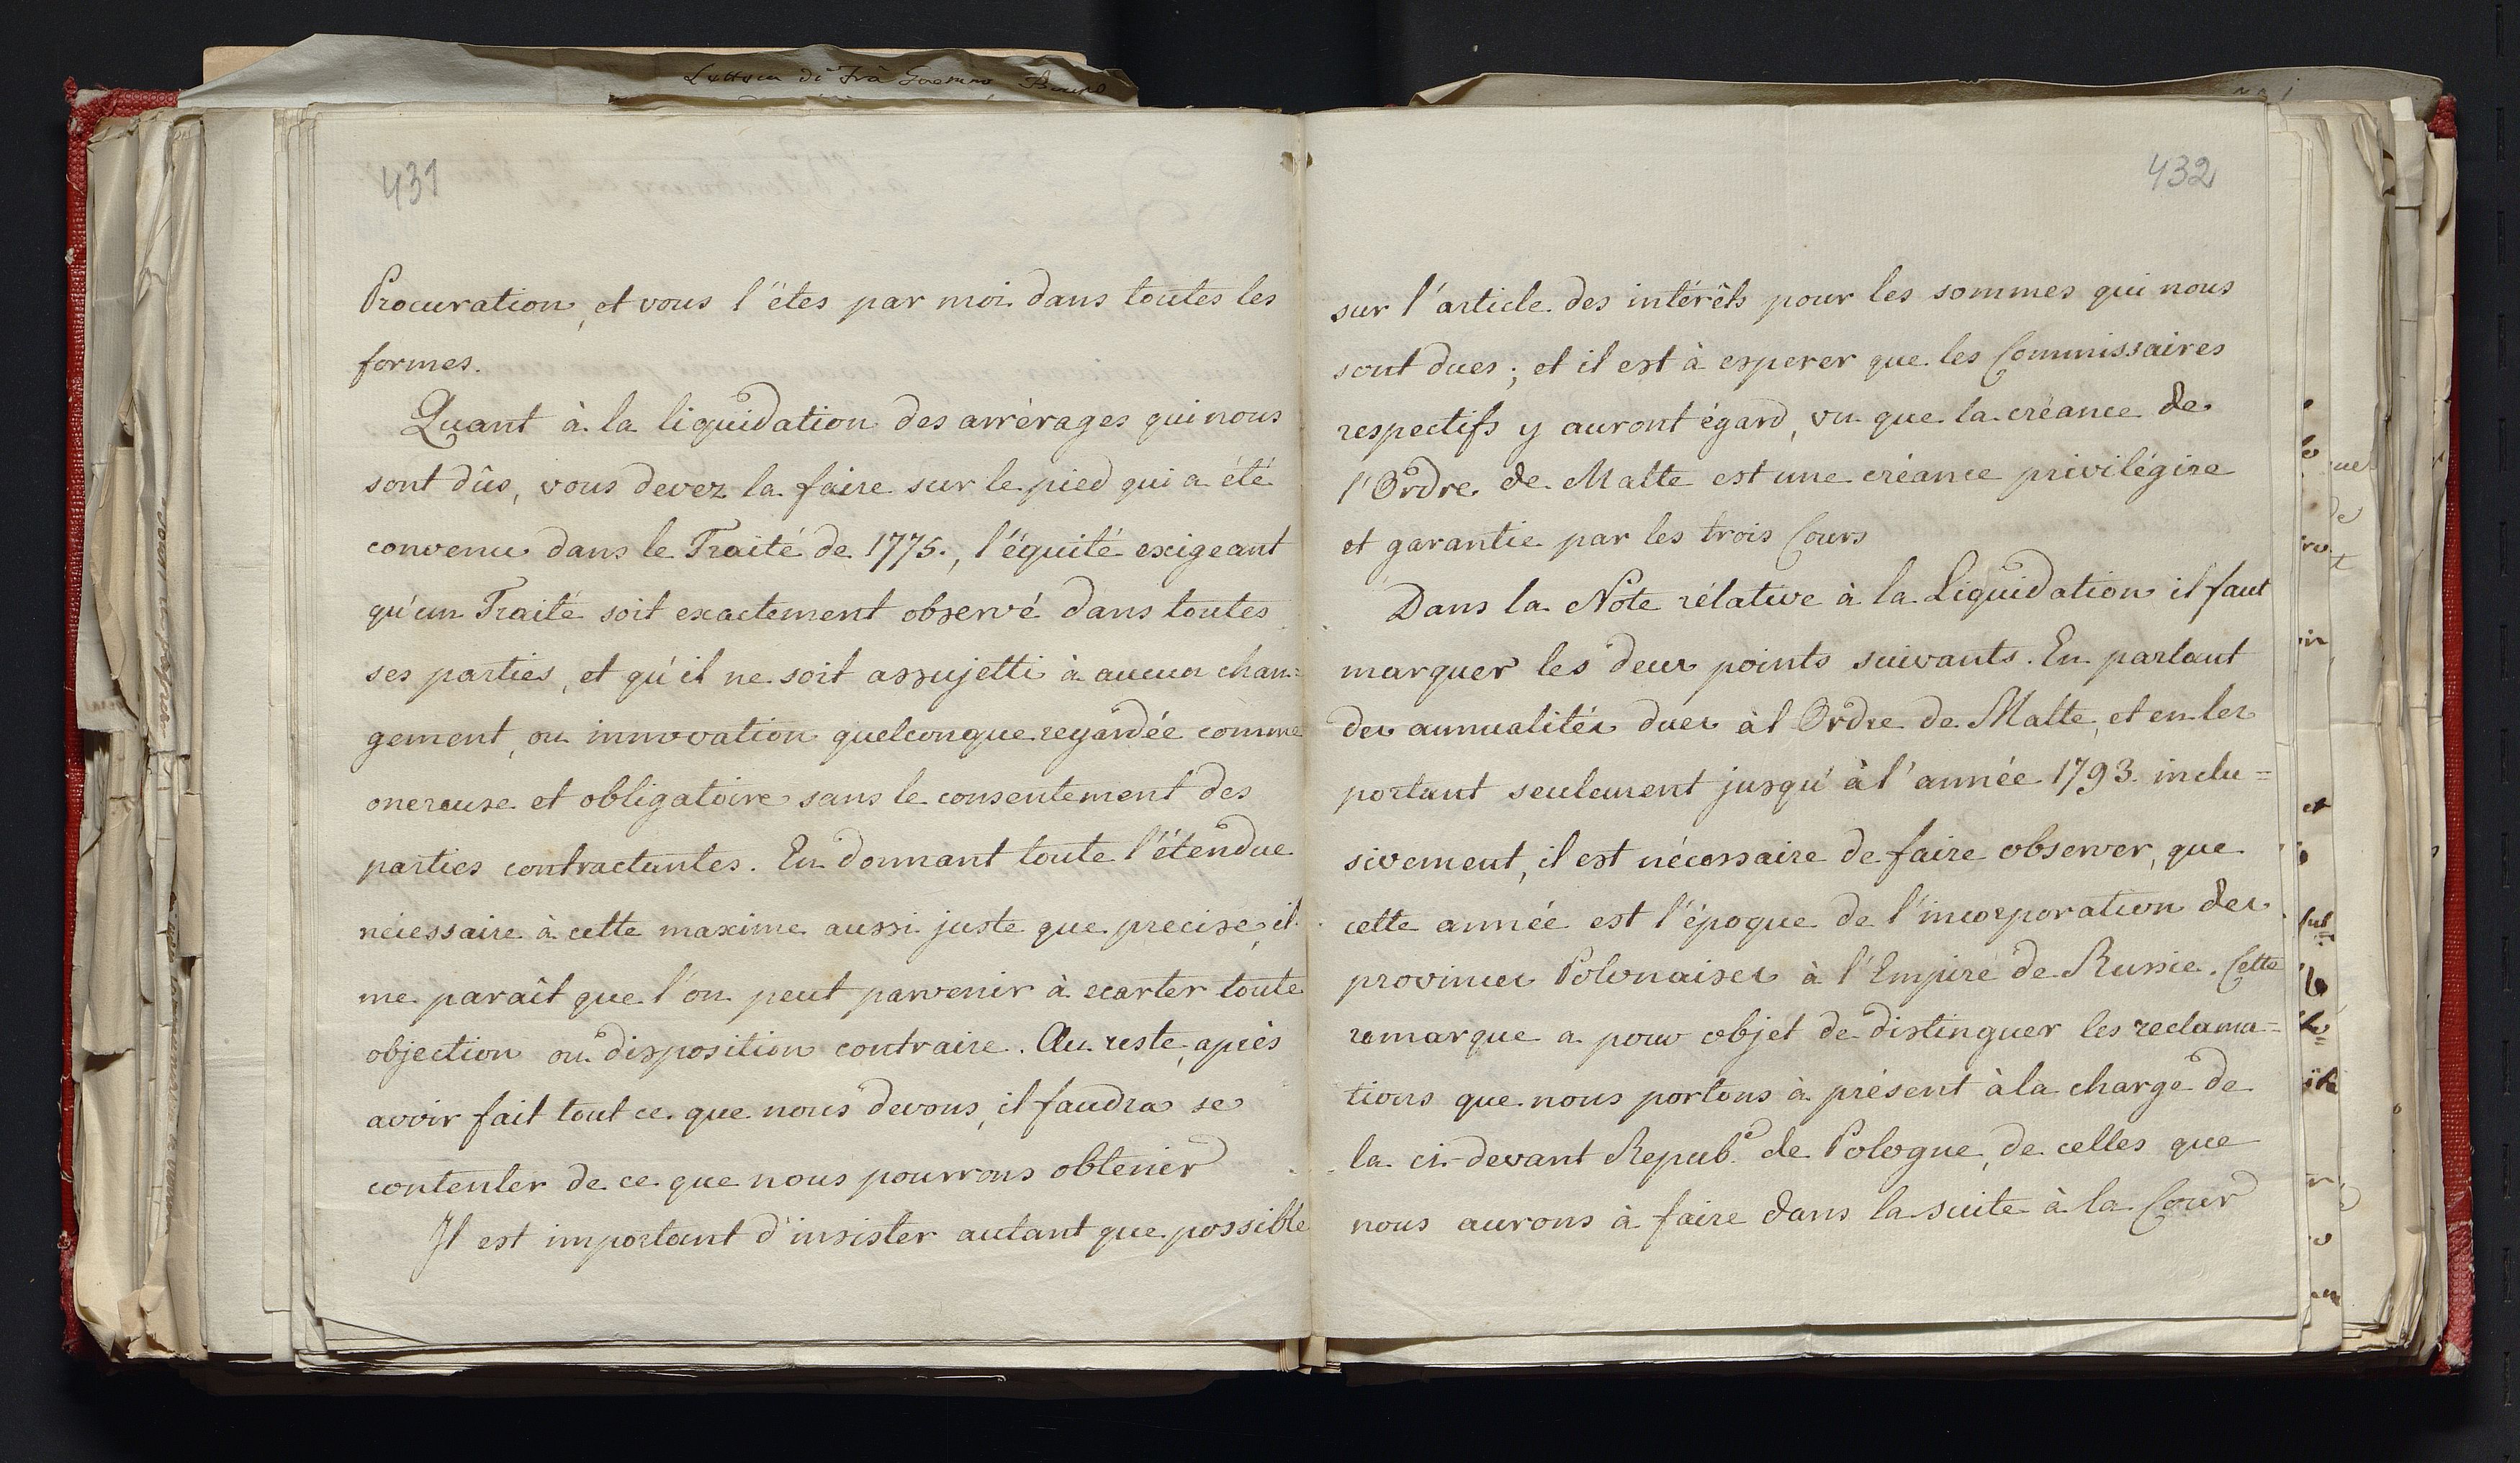 Lettera di Frà Gaetano Bruno
431
Procuration, et vous l'êtes par moi dans toutes les
formes.
Quant à la liquidation des arrèrages qui nous
sont dûs, vous devez la faire sur le pied qui a été
convenu dans le Traité de 1775., l'équité exigeant
qu'un Traité soit exactement observé dans toutes
ses parties, et qu'il ne soit assujetti à aucun chan=
gement, ou innovation quelconque regardée comme
onereuse et obligatoire sans le consentement des
parties contractantes. En donnant toute l'étendue
nécessaire à cette maxime aussi juste que precise, il
me paraît que l'on peut parvenir à ecarter toute
objection ou disposition contraire. Au reste, après
avoir fait tout ce que nous devons, il faudra se
contenter de ce que nous pourrons obtenir
Il est important d'insister autant que possible
432
sur l'article des intérêts pour les sommes qui nous
sont dues; et il est à esperer que les Commissaires
respectifs y auront égard, vu que la créance de
l'Ordre de Malte est une créance privilégiee
et garantie par les trois Cours
Dans la Note rélative à la Liquidation il faut
marquer les deux points suivants. En parlant
des annualités dues à l Ordre de Malte, et en les
portant seulement jusqu'à l'année 1793. inclu=
sivement, il est nécessaire de faire observer, que
cette année est l'époque de l'incorporation des
provinces Polonaises à l'Empire de Russie. Cette
remarque a pour objet de distinguer les reclama=
tions que nous portons à présent à la charge de
la ci-devant Repub.e de Pologne, de celles que
nous aurons à faire dans la suite à la Cour